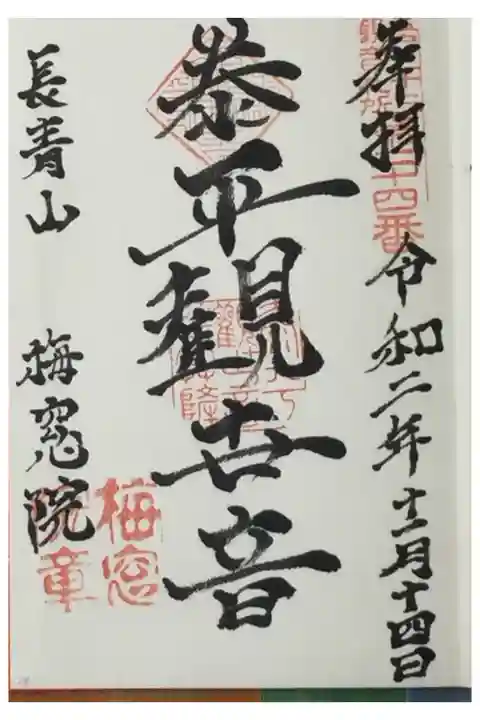 奉拝 令和二年十一月十四日
二十四番
泰平觀世音
長青山 梅窓院
梅窓院章